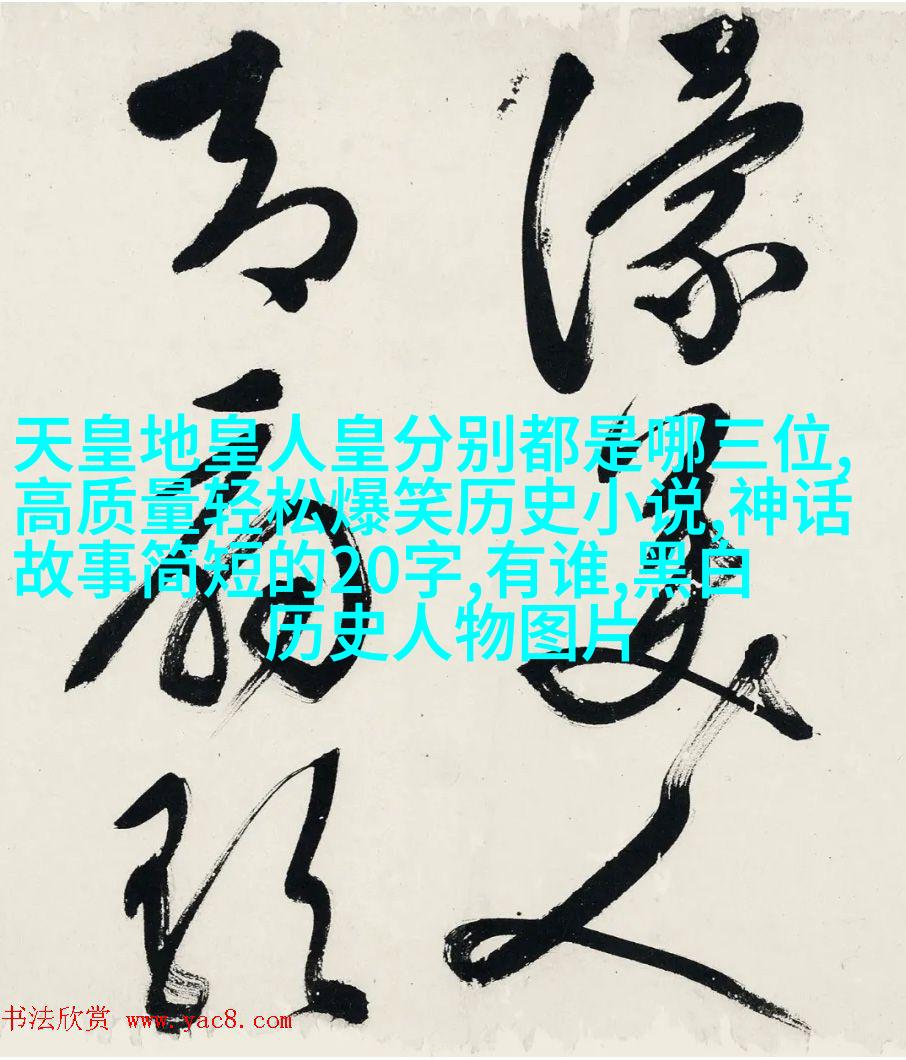 濛美人
天皇地皇人皇分别都是哪三位,
高质量轻松爆笑历史小说,神话
故事简短的20字,有谁,黑白
历史人物图片
书法欣赏 www.yac8.com